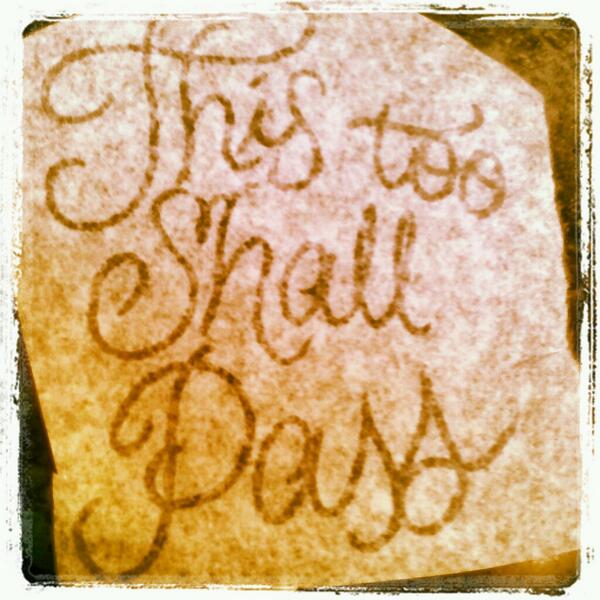 This too
Shall
Pass